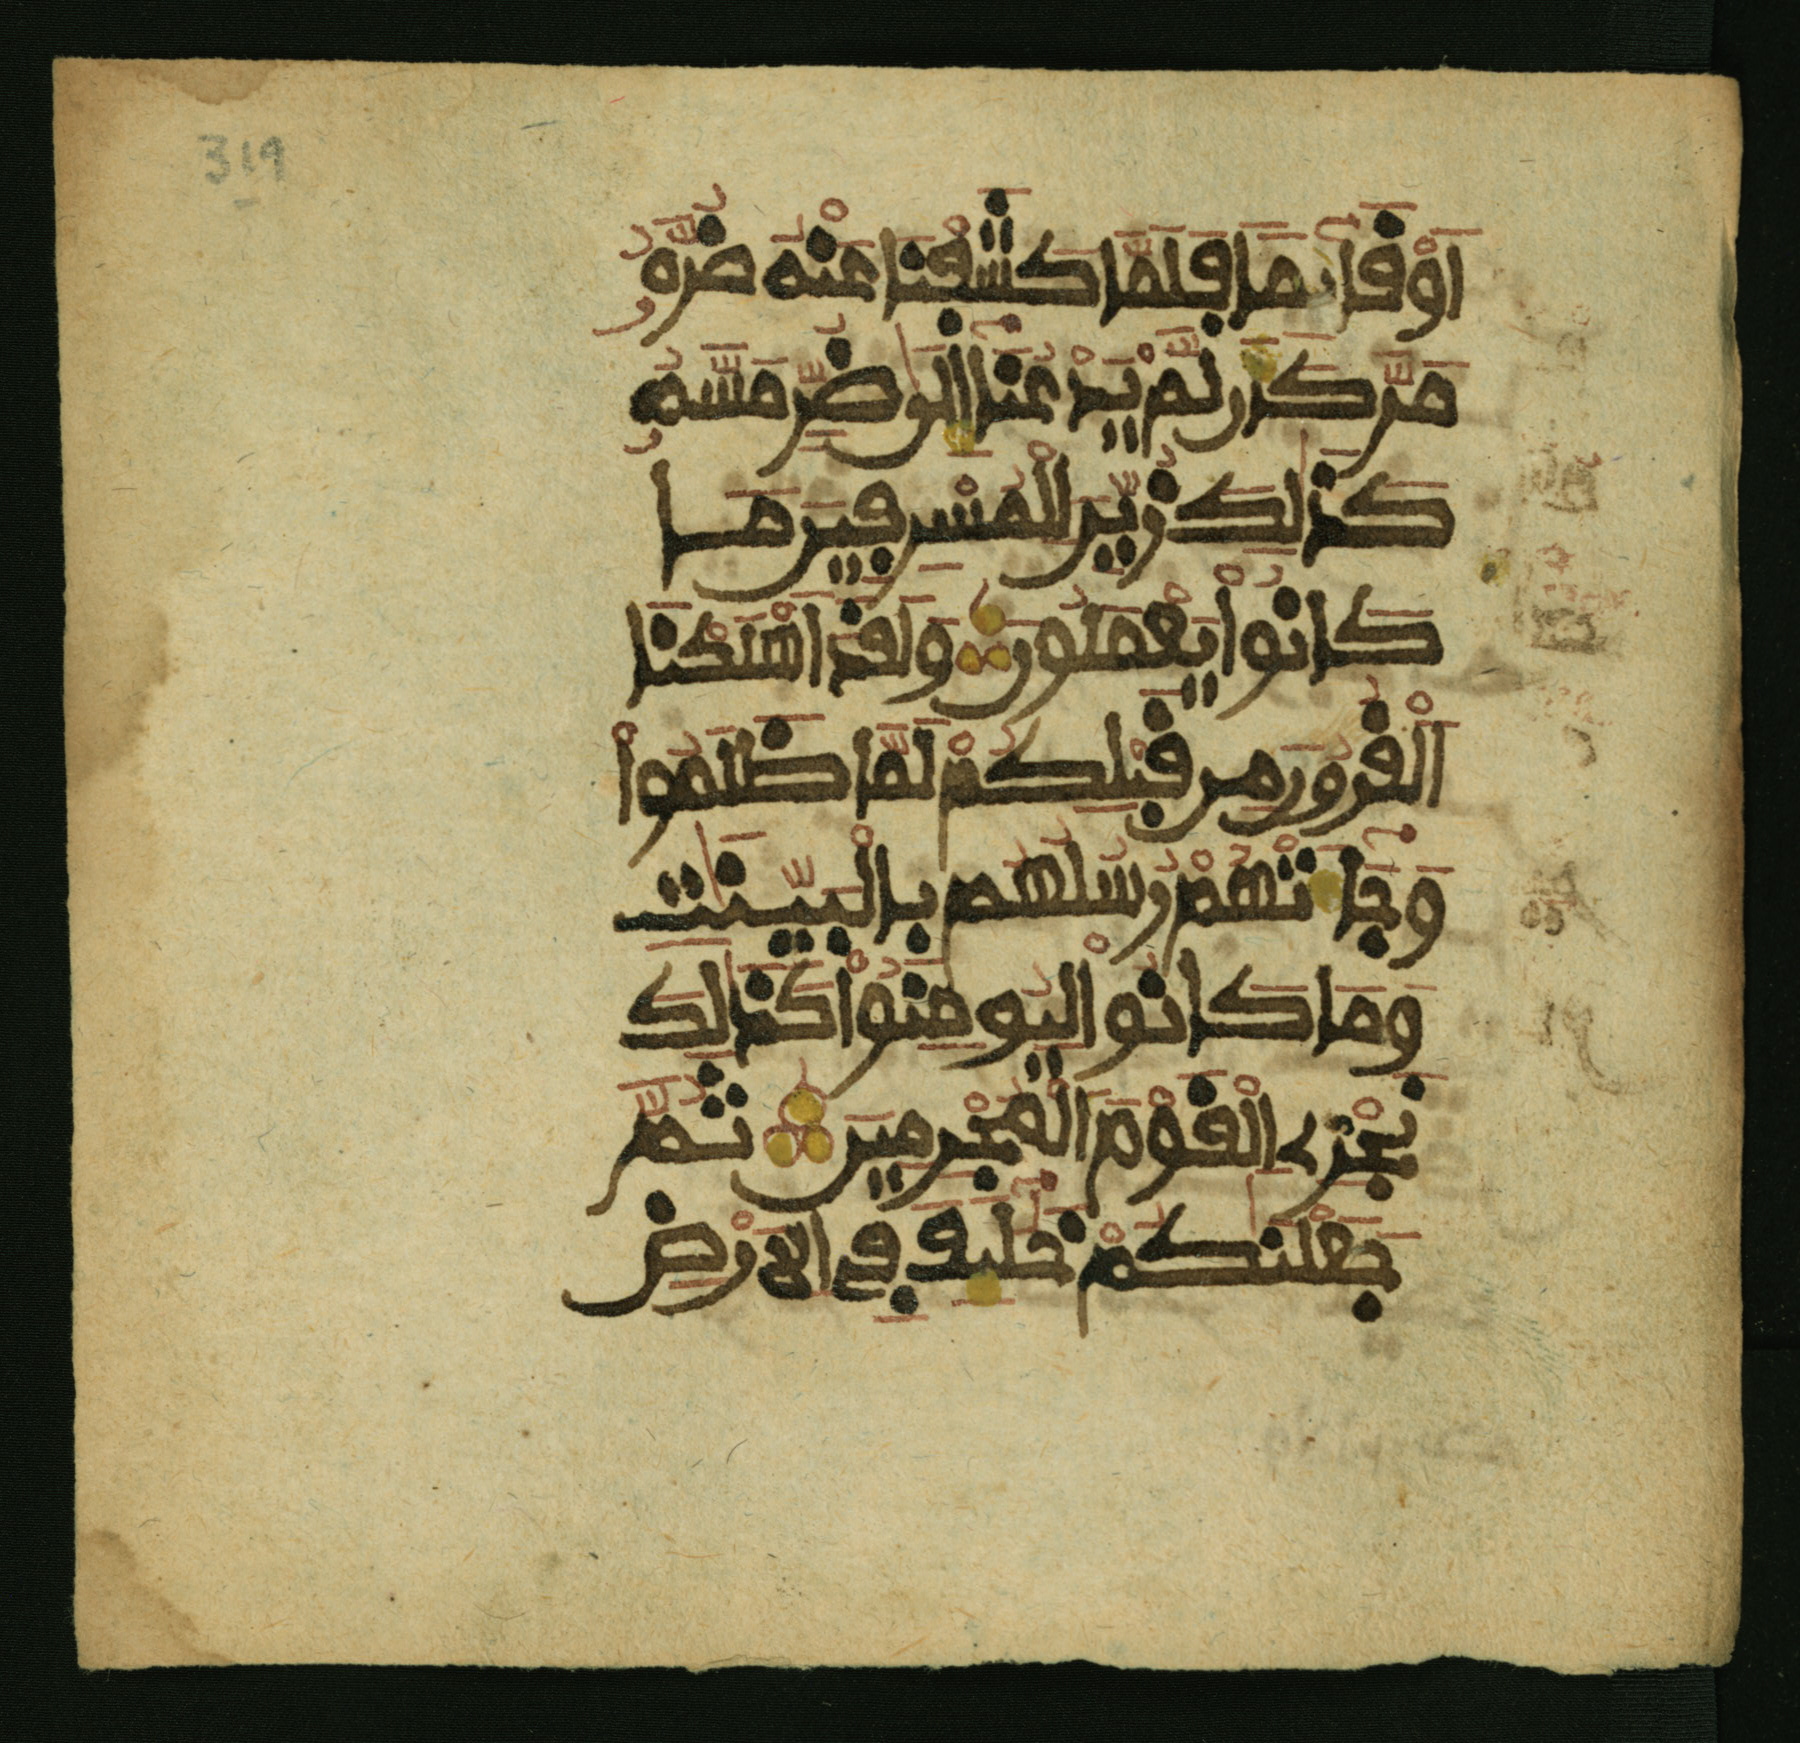 319
اَوْ قَآئِمًا فَلَمَّا كَشَفْنَا عَنْهُ ضُرَّهُۥ
مَرَّ كَأَن لَّمْ يَدْعُنَآ إِلَىٰ ضُرٍّ مَّسَّهُۥ
كَذَٰلِكَ زُيِّنَ لِلْمُسْرِفِينَ مَا
كَانُواْ يَعْمَلُونَ وَلَقَدَ اَهْلَكْنَا
اَلْقُرُونَ مِن قَبْلِكُمْ لَمَّا ظَلَمُواْ
وَجَآءَتْهُمْ رُسُلُهُم بِالْبَيِّنَٰتِ
وَمَا كَانُواْ لِيُومِنُواْ كَذَٰلِكَ
نَجْزِے اِلْقَوْمَ اَلْمُجْرِمِينَ ثُمَّ
جَعَلْنَٰكُمْ خَلَٰٓئِفَ فِے اِلَارْضِ